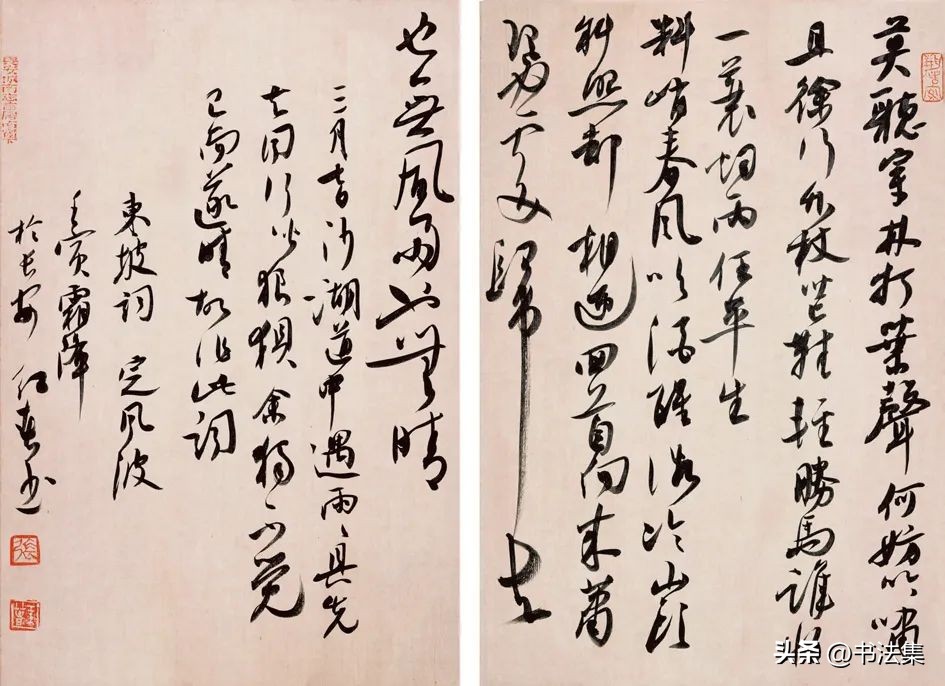 莫聽穿林打葉聲何妨吟嘯
且徐行竹杖芒鞋輕勝馬誰怕
一蓑烟雨任平生
料峭春风吹酒醒微冷山頭
斜照却相迎回首向来蕭
瑟處歸去
也無風雨也無晴
三月七日沙湖道中遇雨〻具先
去同行皆狼狽余獨不覺
已而遂晴故作此詞
東坡詞 定风波
壬寅霜降
於長安 红春书
張
头条 @书法集